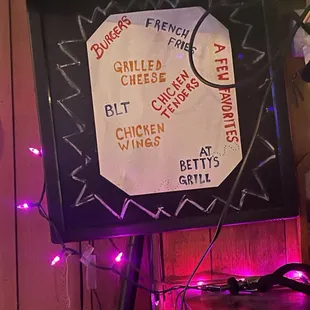 BURGERS
FRENCH
FRIES
A FEW FAVORITES
GRILLED
CHEESE
CHICKEN
TENDERS
BLT
CHICKEN
WINGS
AT
BETTY'S
GRILL